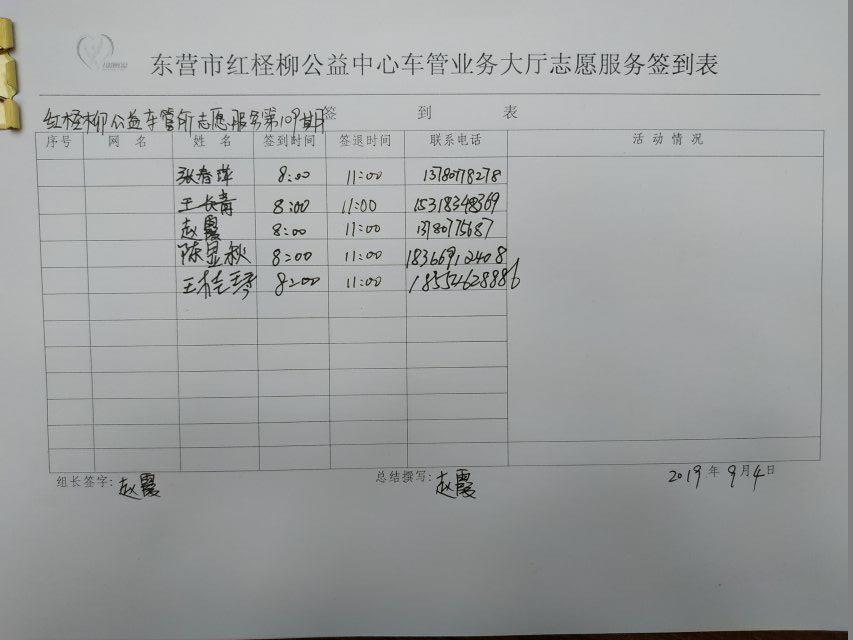 东营市红柽柳公益中心车管业务大厅志愿服务签到表
签 到 表
红柽柳公益车管所志愿服务第109期
序号 网 名 姓 名 签到时间 签退时间 联系电话 活动情况
张春萍 8:00 11:00 13780778278
王长青 8:00 11:00 15318348369
赵霞 8:00 11:00 13780775687
陈显秋 8:00 11:00 18366912408
王桂琴 8:00 11:00 18554628886
组长签字: 赵霞 总结撰写: 赵霞 2019年9月4日